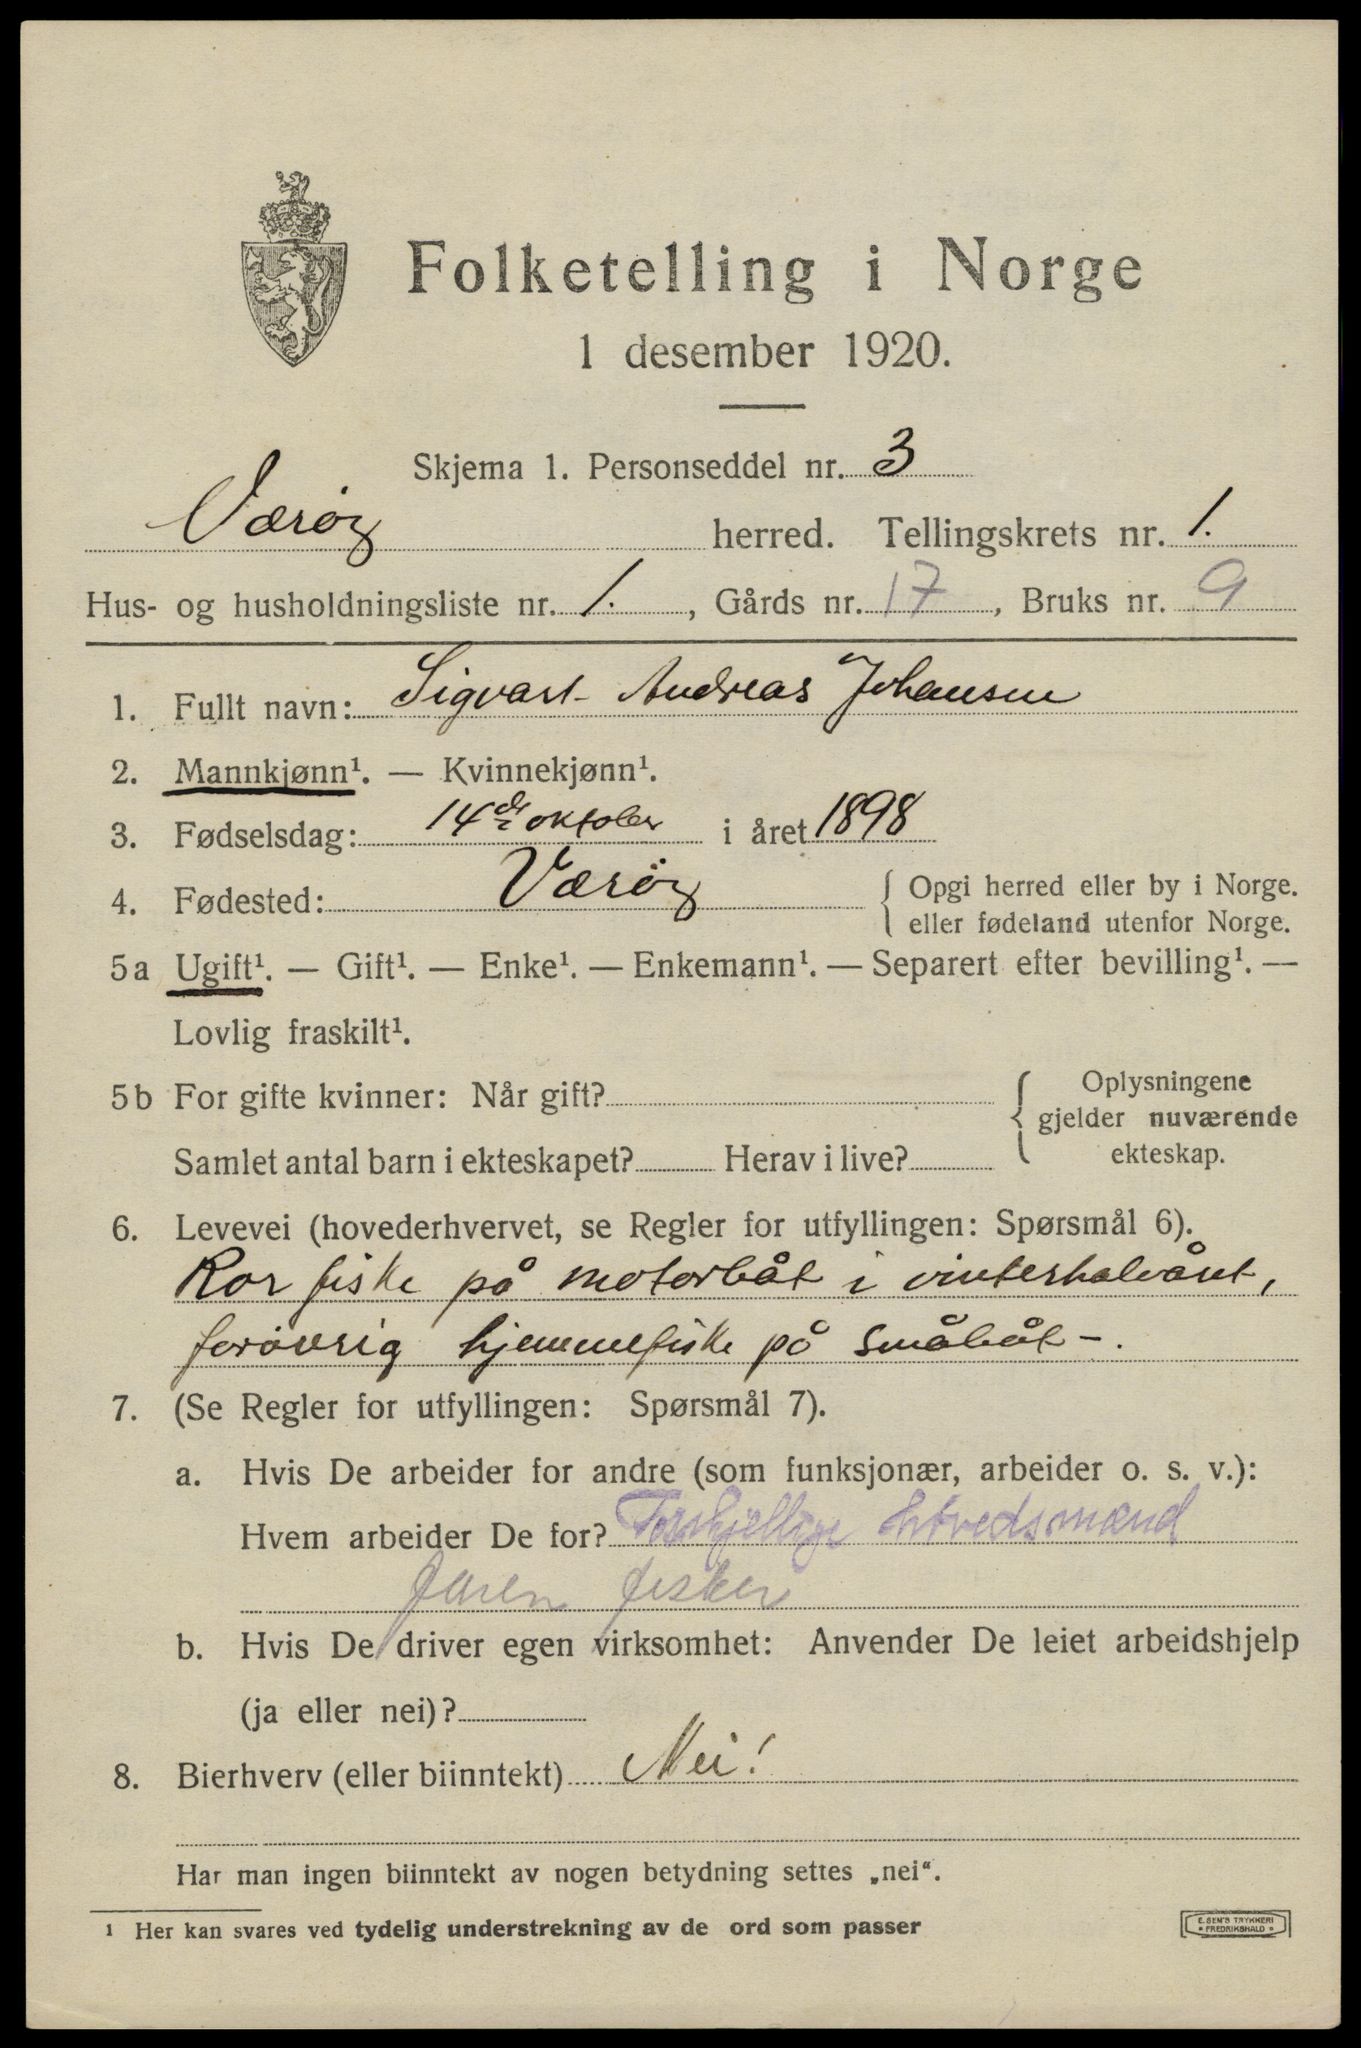 Folketelling i Norge
1 desember 1920.
Skjema 1. Personseddel nr. 3
Værøy herred. Tellingskrets nr. 1.
Hus- og husholdningsliste nr. 1., Gårds nr. 17, Bruks nr. 9
1. Fullt navn: Sigvart Andreas Johansen
2. Mannkjønn¹. — Kvinnekjønn¹.
3. Fødselsdag: 14de oktober i året 1898
4. Fødested: Værøy { Opgi herred eller by i Norge.
eller fødeland utenfor Norge.
5a Ugift¹. — Gift¹. — Enke¹. — Enkemann¹. — Separert efter bevilling¹. —
Lovlig fraskilt¹.
5b For gifte kvinner: Når gift? { Oplysningene
gjelder nuværende
Samlet antal barn i ekteskapet? Herav i live? ekteskap.
6. Levevei (hovederhvervet, se Regler for utfyllingen: Spørsmål 6).
Ror fiske på motorbåt i vinterhalvåret,
forøvrig hjemmefiske på småbåt -.
7. (Se Regler for utfyllingen: Spørsmål 7).
a. Hvis De arbeider for andre (som funksjonær, arbeider o. s. v.):
Hvem arbeider De for? Forskjellige
fisker
b. Hvis De driver egen virksomhet: Anvender De leiet arbeidshjelp
(ja eller nei)?
8. Bierhverv (eller biinntekt) Nei!
Har man ingen biinntekt av nogen betydning settes „nei“.
1 Her kan svares ved tydelig understrekning av de ord som passer
E. SEM'S TRYKKERI
* FREDRIKSHALD *